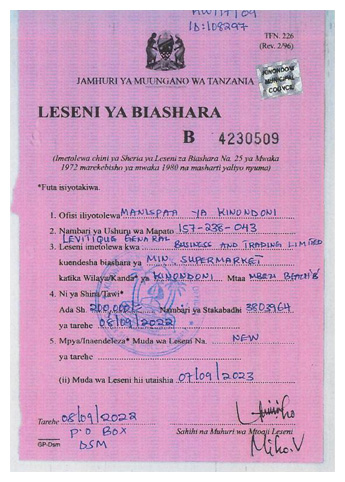 ID:108297
TFN. 226
(Rev. 2/96)
KINONDONI MUNICIPAL COUNCIL
JAMHURI YA MUUNGANO WA TANZANIA
LESENI YA BIASHARA
B 4230509
(Imetolewa chini ya Sheria ya Leseni za Biashara Na. 25 ya Mwaka
1972 marekebisho ya mwaka 1980 na masharti yaliyo nyuma)
*Futa isiyotakiwa.
1. Ofisi iliyotolewa MANISPAA YA KINONDONI
2. Nambari ya Ushuru wa Mapato 157-238-043
LEVITIQUE GENERAL
3. Leseni imetolewa kwa BUSINESS AND TRADING LIMITED
kuendesha biashara ya MINI SUPERMARKET
katika Wilaya/Kanda* ya KINONDONI Mtaa MBEZI BEACH 'B'
4. Ni ya Shina/Tawi*
Ada Sh. 200,000 Nambari ya Stakabadhi 3803964
ya tarehe 08/09/2022
5. Mpya/Inaendeleza* Muda wa Leseni Na. NEW
ya tarehe
(ii) Muda wa Leseni hii utaishia 07/09/2023
Tarehe 08/09/2022
P.O BOX
DSM
Sahihi na Muhuri wa Mtoaji Leseni
GP-Dsm